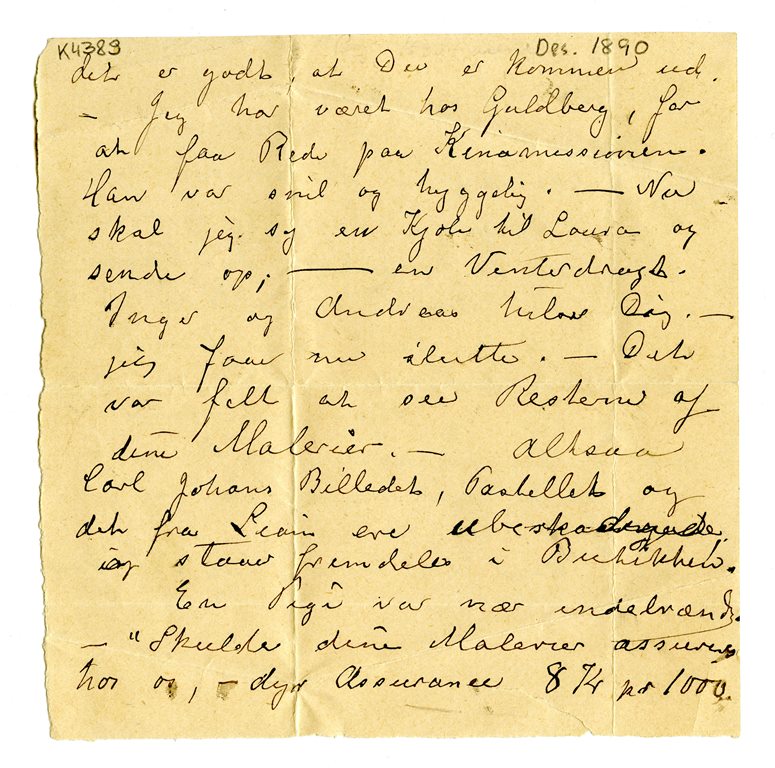 K4389 Des. 1890
det er godt, at Du er kommen ud.
– Jeg har været hos Guldberg, for
at faa Rede paa Kinamissionen.
Han var snil og hyggelig. — Nu
skal jeg sy en Kjole til Laura og
sende op; —— en Venterdragt.
Inger og Andreas hilser Dig. –
jeg faar nu slutte. – Det
var fælt at see Resterne af
dine Malerier. – altsaa
Carl Johans Billedet, Pastellet og
det fra Leain ere ubeskadigede
og staar fremdeles i Buthikken.
En Pige var nær indebrændt.
– "Skulde dine Malerier assureres
hos os, – dyr Assurance 8 Kr pr 1000